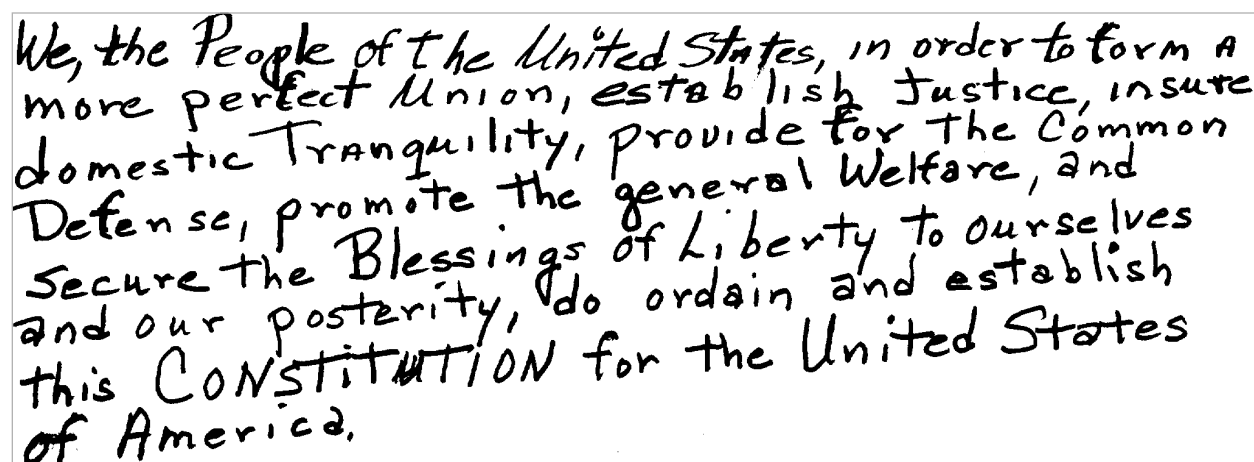 We, the People of the United States, in order to form A
more perfect Union, establish Justice, insure
domestic Tranquility, provide for the Common
Defense, promote the general Welfare, and
secure the Blessings of Liberty to ourselves
and our posterity, do ordain and establish
this CONSTITUTION for the United States
of America.